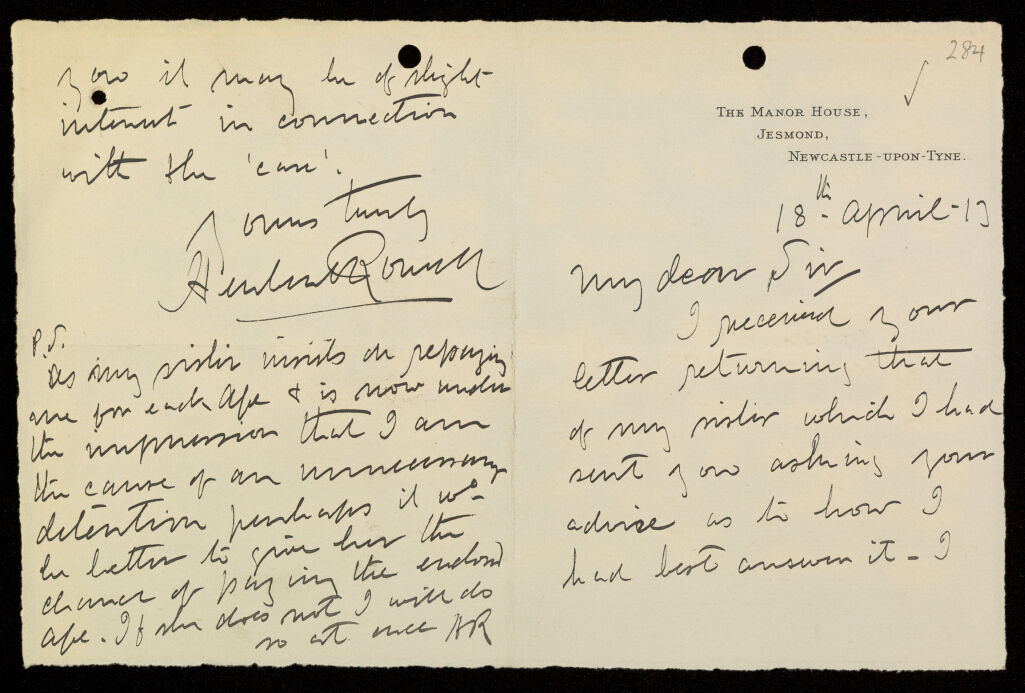 284
THE MANOR HOUSE,
JESMOND,
NEWCASTLE-UPON-TYNE.
18th April - 13
My dear Sir
I received your
letter returning that
of my sister which I had
sent you asking your
advise as to how I
had best answer it - I
you it may be of slight
interest in connection
with the 'case'.
Yours truly
Herbert Rowell
P.S.
As my sister insists on repaying
me for each & is now under
the impression that I am
the cause of an unnecessary
detention perhaps it wd
be better to give her the
chance of paying the enclosed
If she does not I will do
so at once HR